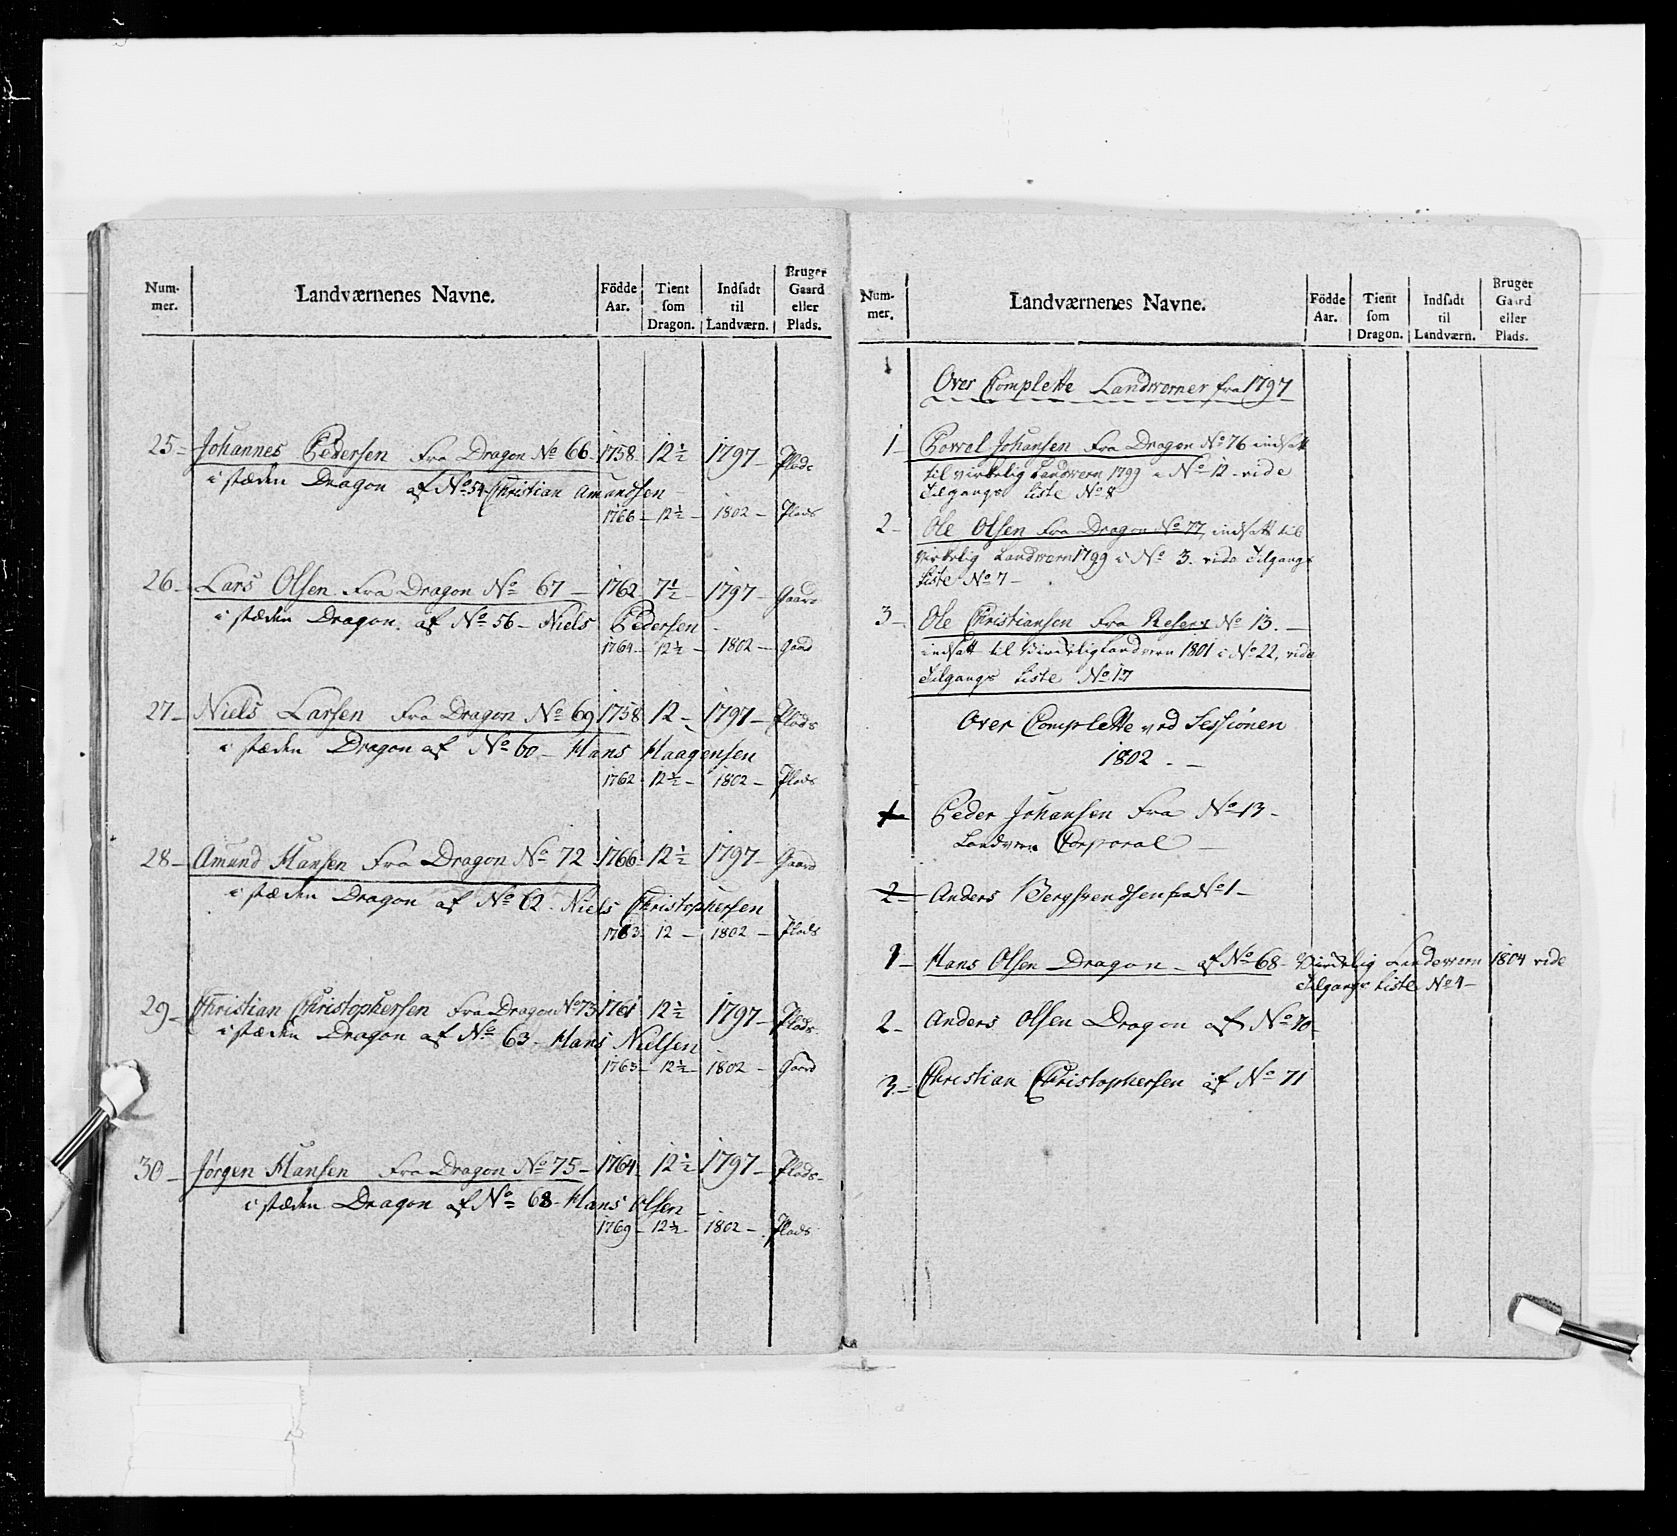 Num-
mer.
Landværnenes Navne.
Födde
Aar.
Tient
som
Dragon.
Indsadt
til
Landværn.
Bruger
Gaard
eller
Plads.
25- Johannes Pedersen Fra Dragon No 66. 1758- 12½ 1797- Plads
i stæden Dragon af No 54- Christian Amundsen
1766- 12½- 1802- Plads
26- Lars Olsen Fra Dragon No 67- 1762 7½- 1797- Gaard
i stæden Dragon af No 56- Niels Pedersen
1764- 12½- 1802- Gaad
27- Niels Larsen Fra Dragon No 69 1758 12- 1797- Plads
i stæden Dragon af No 60- Hans Haagensen
1762 12½- 1802- Plads
28- Amund Hansen Fra Dragon No 72 1766- 12½ 1797- Gaard
i stæden Dragon af No 62- Niels Christophersen
1763- 12- 1802- Plads
29- Christian Christophersen Fra Dragon No 73 1761 12½ 1797- Plads-
i stæden Dragon af No 63- Hans Nielsen
1763- 12½- 1802- Gaard
30- Jørgen Hansen Fra Dragon No 75- 1764- 12½ 1797- Plads-
i stæden Dragon af No 68- Hans Olsen
1769- 12½- 1802- Plads
Num-
mer.
Landværnenes Navne.
Födde
Aar.
Tient
som
Dragon.
Indsadt
til
Landværn.
Bruger
Gaard
eller
Plads.
Over Complette Landværner fra 1797
1- Powel Johansen Fra Dragon No 76 indsatt
til virkelig Landvern 1799 i No 12- vide
Tilgangs Liste No 8
2- Ole Olsen Fra Dragon No 77, indsatt til
Virkelig Landvern 1799 i No 3. vide Tilgangs
Liste No 7-
3- Ole Christiansen Fra Reserv No 13.-
indsatt til Virkelig Landvern 1801 i No 22, vide
Tilgangs Liste No 17
Over Complette ved Sessionen
1802.-
1- Peder Johansen Fra No 13-
Landvern Corporal-
2- Anders Bergsvendsen fra No 1-
1- Hans Olsen Dragon- af No 68- Virkelig Landevern 1804 vide
Tilgangs Liste No 4-
2- Anders Olsen Dragon af No 70
3- Christian Christophersen af No 71